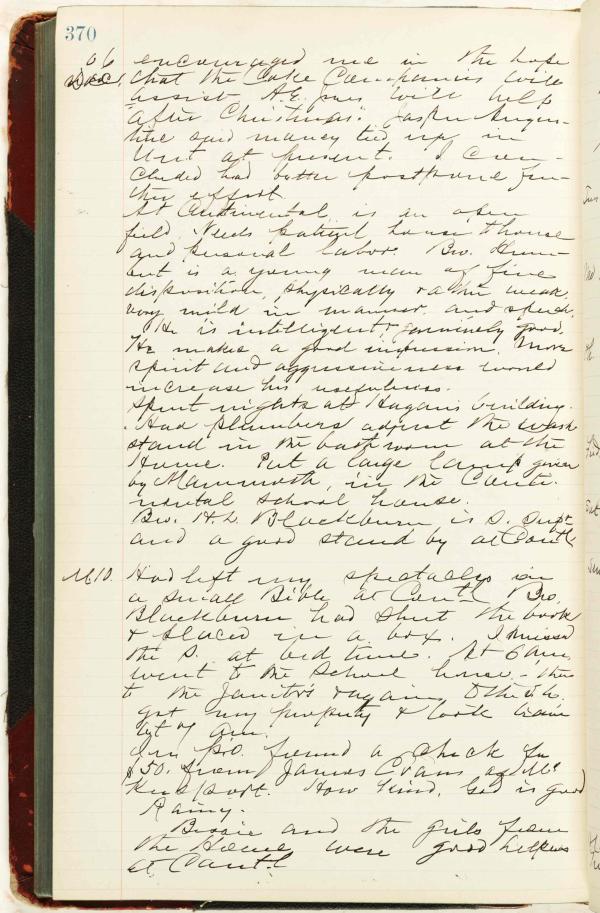 370
06 encouraged me in the hope
Dec. that the Coke Companies will
assist. A.E. Jones will help
after Christmas. Jasper Augus-
tine said money tied up in
Unit at present. I con-
cluded had better postpone fur-
ther effort.
At Continental is an open
field. Needs patient house to house
and personal labor. Bro. Hun-
is a young man of fine
disposition, physically rather weak,
very mild in manner and speech.
He is intelligent & genuinely good.
He makes a good impression. More
spirit and aggressiveness would
increase his usefulness.
Spent nights at Hagans building.
Had plumbers adjust the wash
stand in the bath room at the
Home. Put a large lamp given
by Mammoth, in the Conti-
nental school house.
Bro. H.L. Blackburn is S. Supt
and a good stand by at Contl
M10. Had left my spectacles in
a small Bible at Contl. Bro.
Blackburn had shut the book
& placed in a box. I missed
the S. at bed time. At 6 am
went to the School house - then
to the Janitor's & again to the S.h.
got my property & took train
at 7 am.
found a check for
$50. from James Evans of Mc
Keesport. How kind. God is good
Rainy.
Bessie and the girls from
the Home were good helpers
at Contl